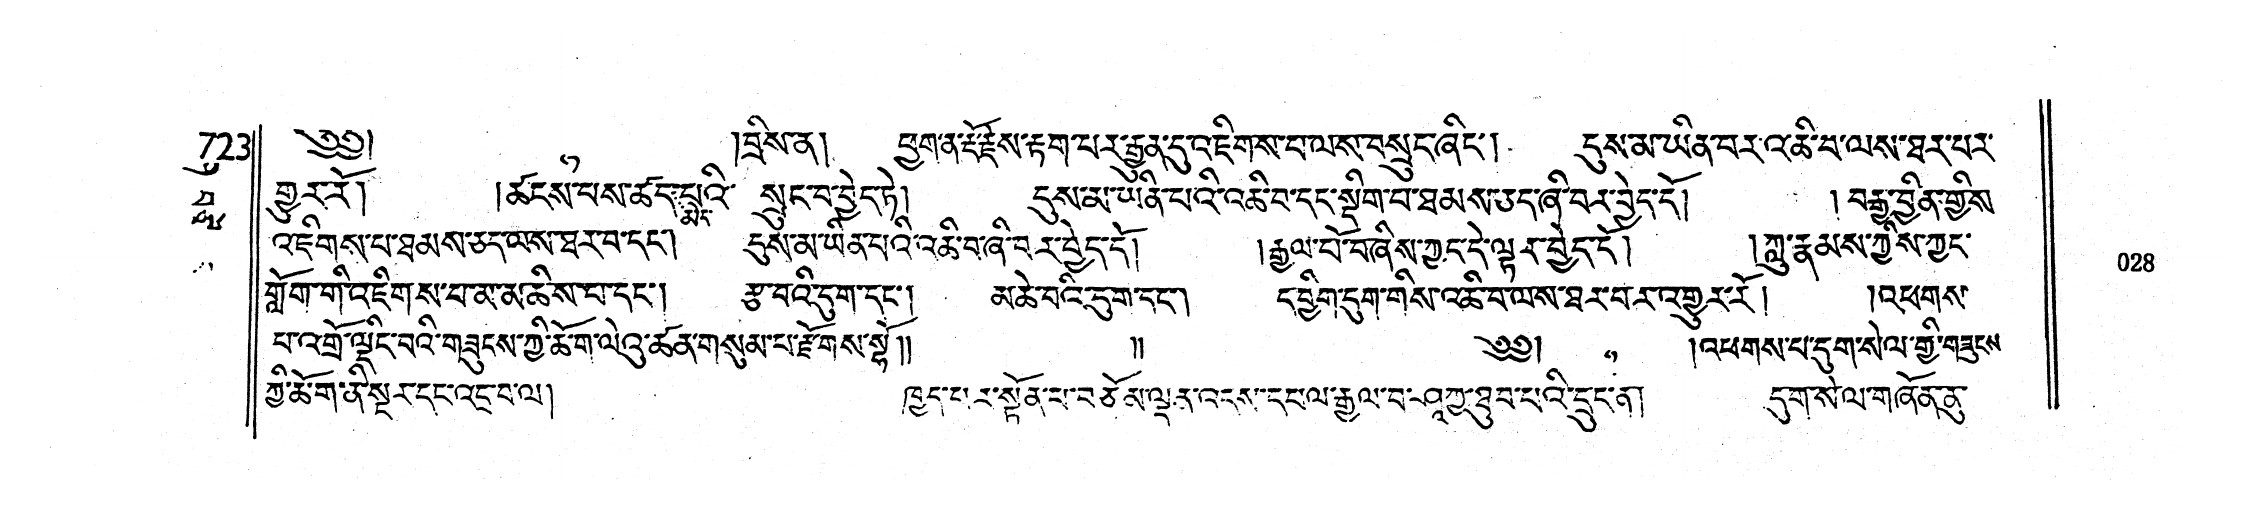 723 ༄༅། །བྲིས་ན། ཕྱག་ན་རྡོ་རྗེས་རྟག་པར་རྒྱུན་དུ་འཇིགས་པ་ལས་བསྲུང་ཞིང་། དུས་མ་ཡིན་པར་འཆི་བ་ལས་ཐར་པར་
གྱུར་རོ། །ཚངས་པས་ཚད་ སྲུང་བ་བྱེད་དེ། དུས་མ་ཡིན་པའི་འཆི་བ་དང་སྡིག་པ་ཐམས་ཅད་ཞི་བར་བྱེད་དོ། །བརྒྱ་བྱིན་གྱིས
འཇིགས་པ་ཐམས་ཅད་ལས་ཐར་བ་དང་། དུས་མ་ཡིན་པའི་འཆི་བ་ཞི་བར་བྱེད་དོ། །རྒྱལ་པོ་བཞིས་ཀྱང་དེ་ལྟར་བྱེད་དོ། །ཀླུ་རྣམས་ཀྱིས་ཀྱང་
གློག་གི་འཇིགས་པ་མ་མཆིས་པ་དང་། རྩ་བའི་དུག་དང་། མཆེ་བའི་དུག་དང་། དབྱིག་དུག་གིས་འཆི་བ་ལས་ཐར་བར་འགྱུར་རོ། །འཕགས་
པ་འགྲོ་ལྡིང་བའི་གཟུངས་ཀྱི་ཆོ་ག་ལེའུ་ཚན་གསུམ་པ་རྫོགས་སྷོ།། །། ༄༅། །འཕགས་པ་དུག་སེལ་གྱི་གཟུངས
ཀྱི་ཆོ་ག་ནི་སྔར་དང་འདྲ་བ་ལ། ཁྱད་པར་སྟོན་པ་བཅོམ་ལྡན་འདས་དཔལ་རྒྱལ་བ་ཤཱཀྱ་ཐུབ་པའི་དྲུང་ན། དུག་སེལ་གཞོན་ནུ་
028